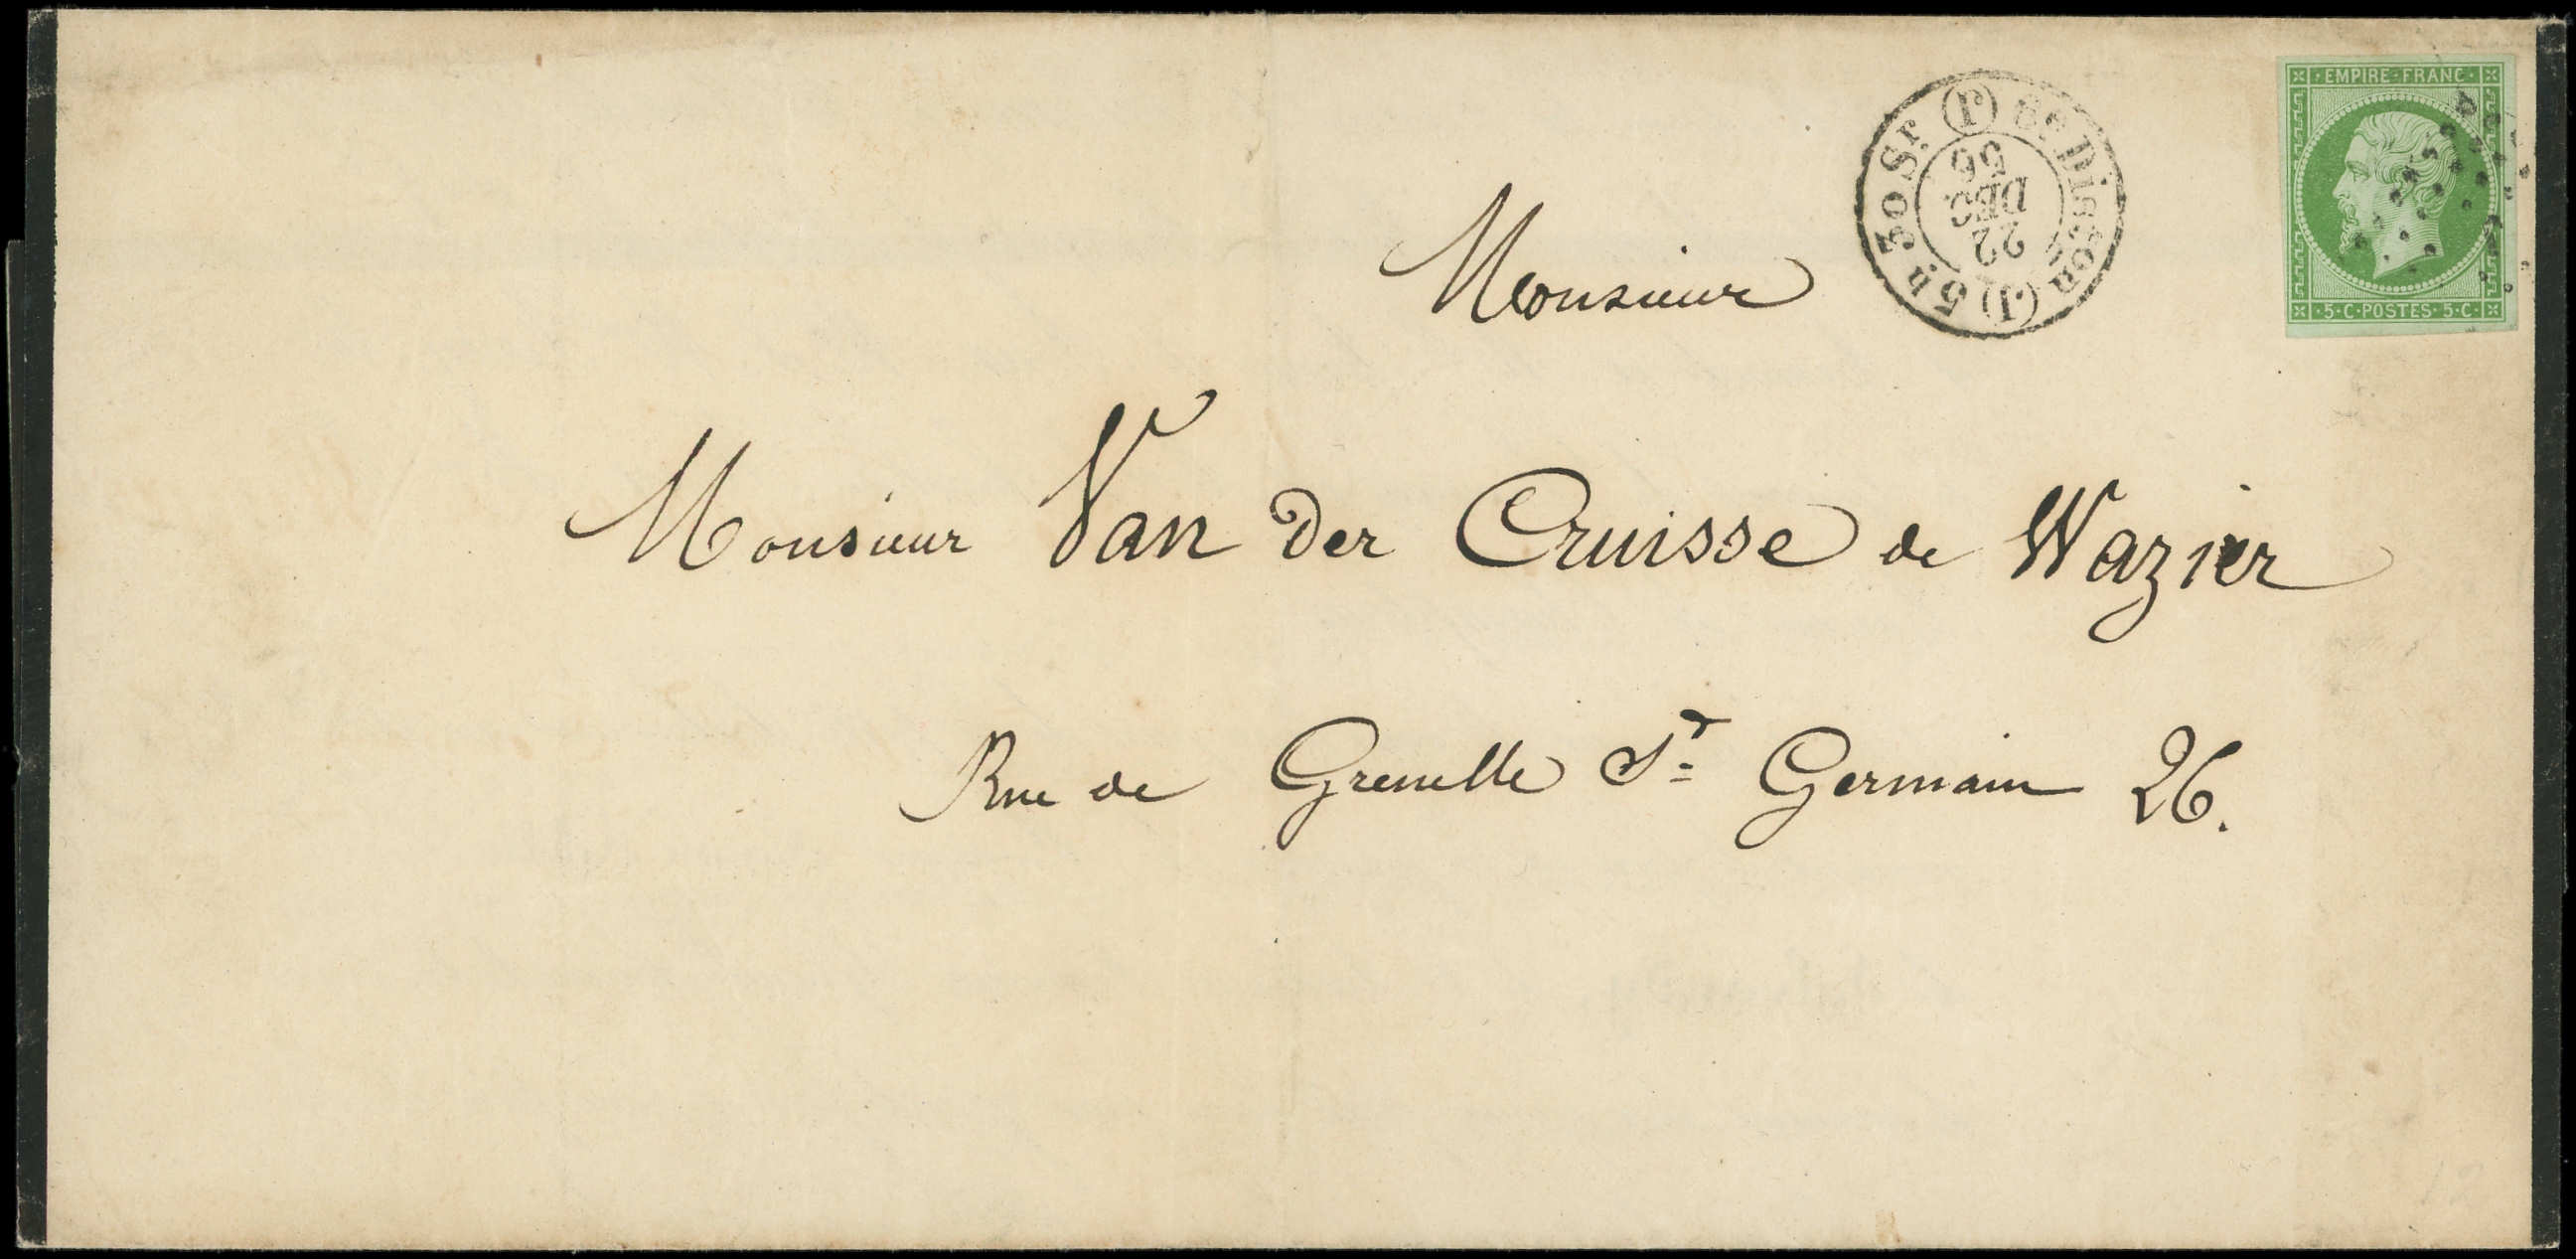 EMPIRE·FRANC·
5·C·POSTES·5·C·
6e Dis​ton (1) 5h 30 Sr (1)
22
DEC
56
Monsieur
Monsieur Van der Cruisse de Wazier
Rue de Grenelle St Germain 26.